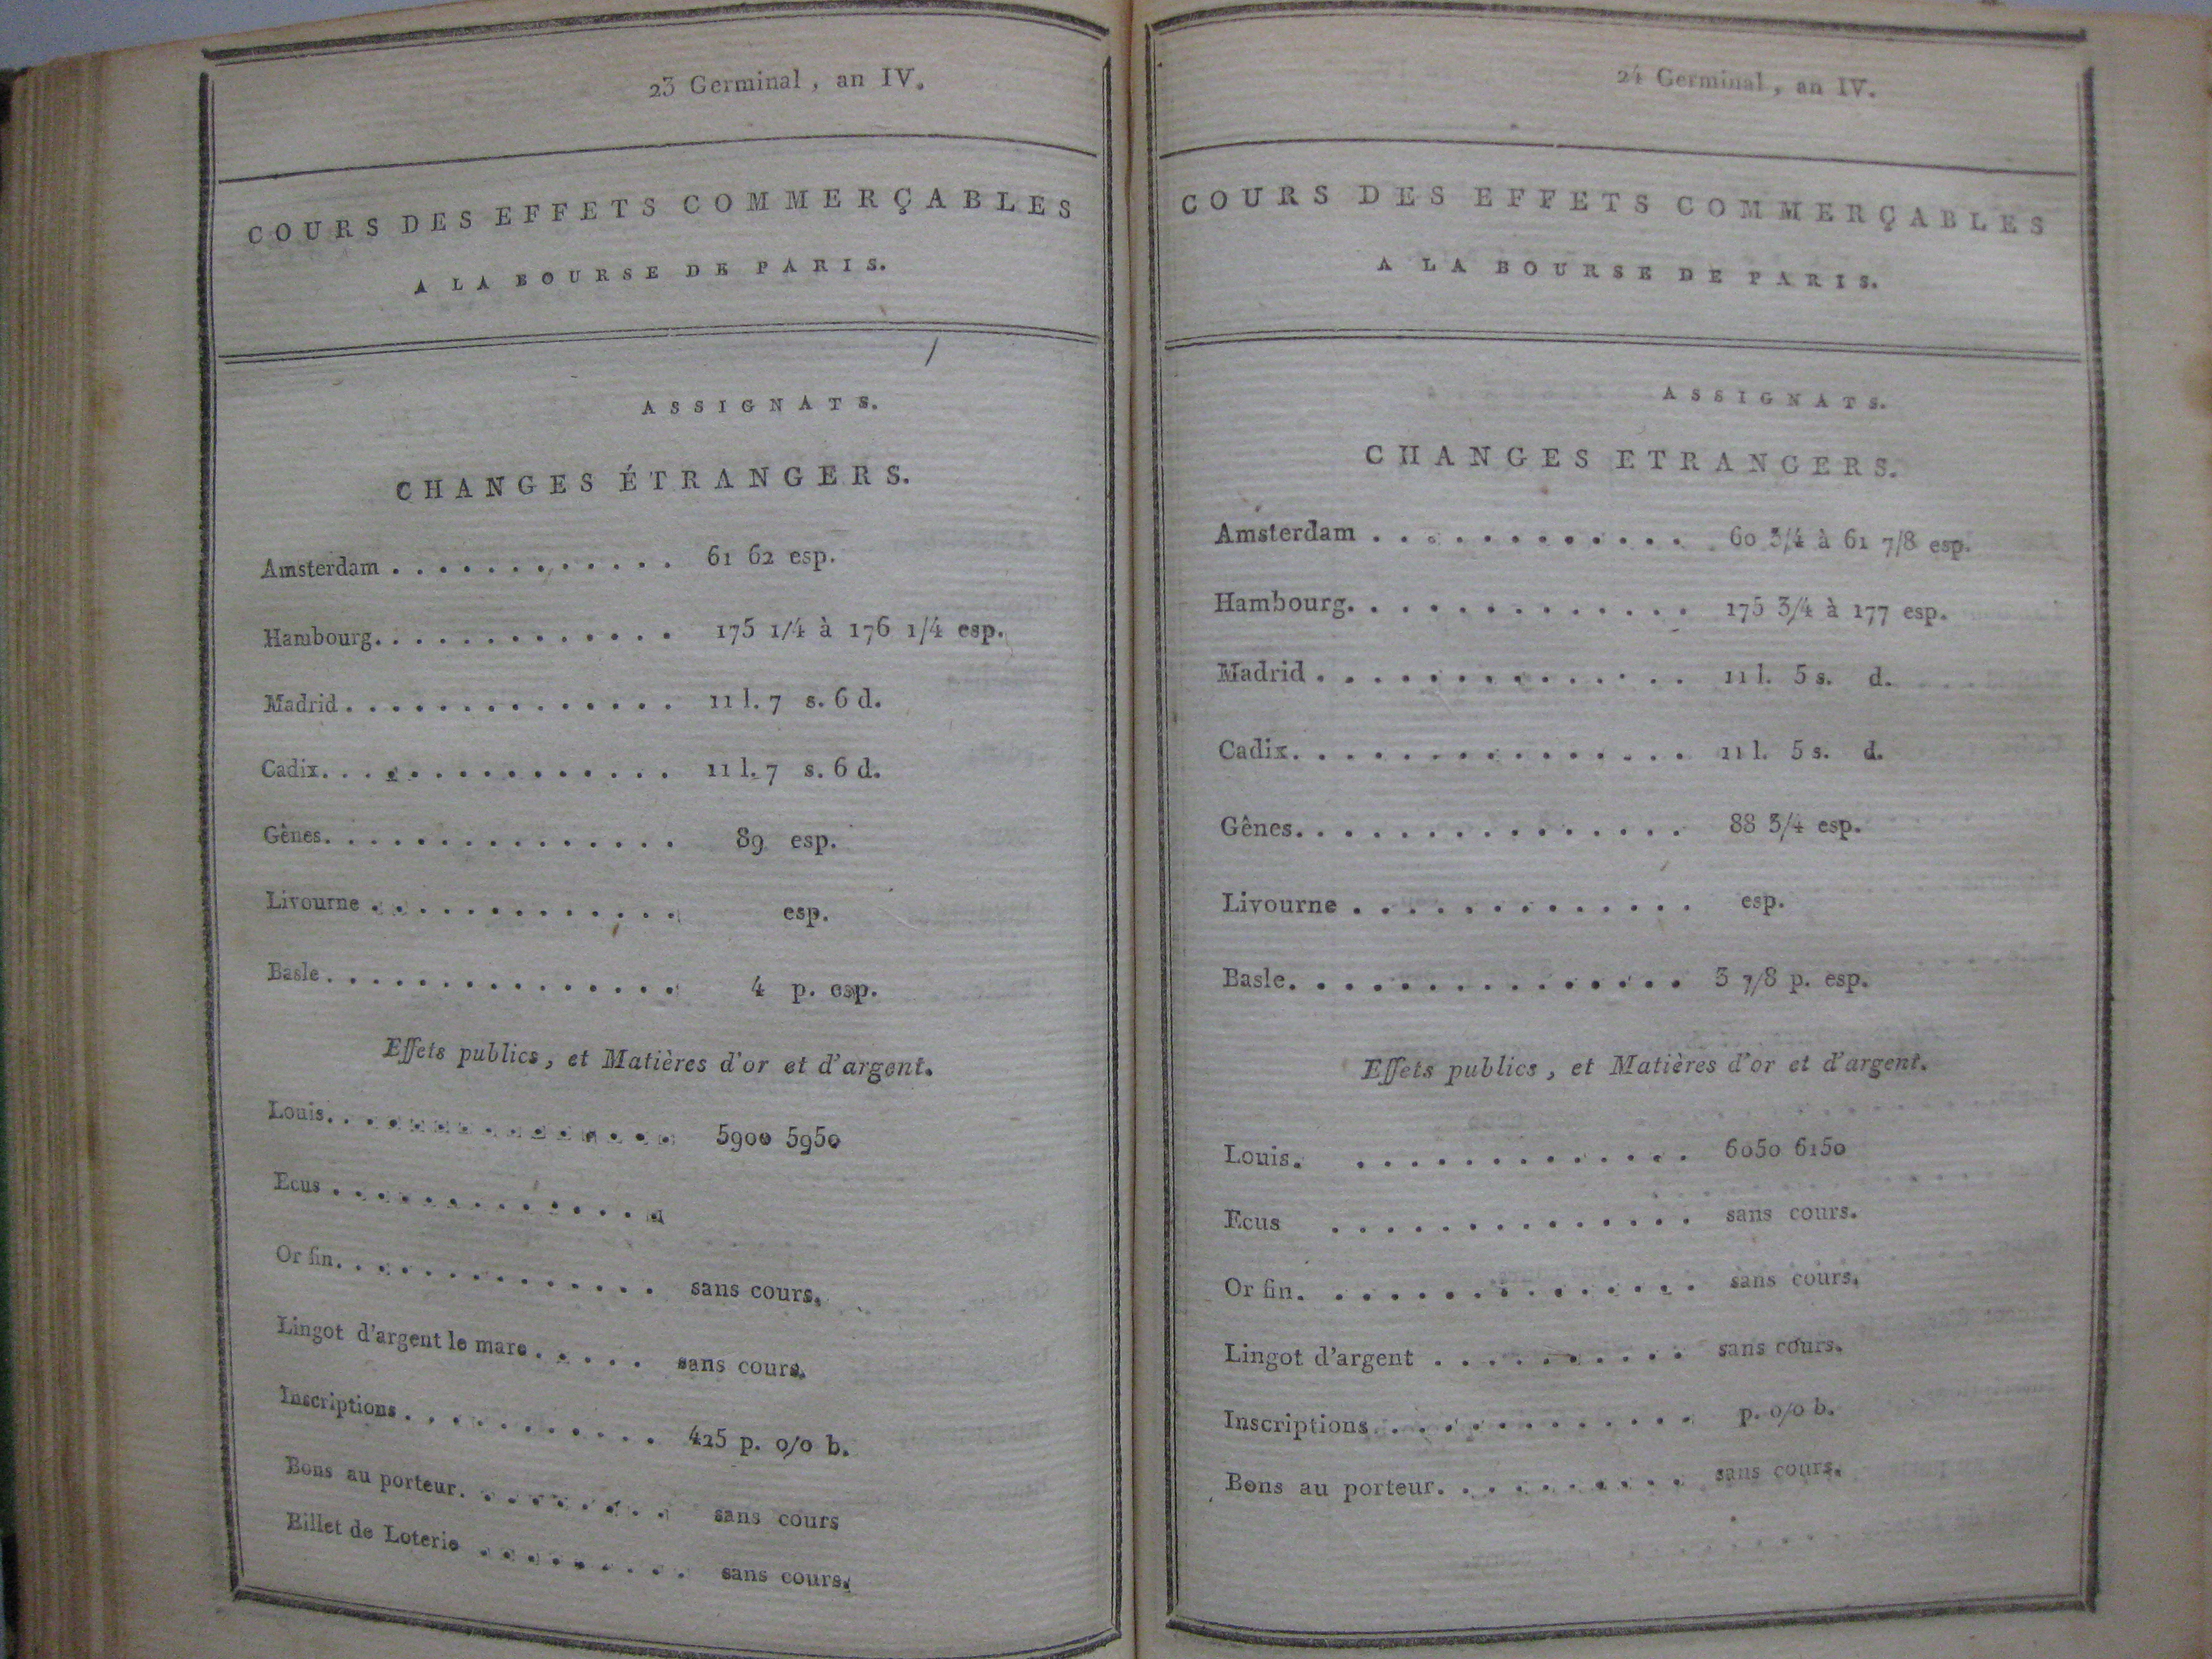 23 Germinal, an IV.
COURS DES EFFETS COMMERÇABLES
A LA BOURSE DE PARIS.
ASSIGNATS.
CHANGES ÉTRANGERS.
Amsterdam . . . . . . . . . . . . 61 62 esp.
Hambourg. . . . . . . . . . . . . 175 1/4 à 176 1/4 esp.
Madrid . . . . . . . . . . . . . . 11 l. 7 s. 6 d.
Cadix. . . . . . . . . . . . . . . 11 l. 7 s. 6 d.
Gênes. . . . . . . . . . . . . . . 89 esp.
Livourne . . . . . . . . . . . . . esp.
Basle . . . . . . . . . . . . . . . 4 p. esp.
Effets publics, et Matières d'or et d'argent.
Louis. . . . . . . . . . . . . . . 5900 5950
Ecus . . . . . . . . . . . . . .
Or fin. . . . . . . . . . . . . . sans cours.
Lingot d'argent le marc . . . . . sans cours.
Inscriptions . . . . . . . . . . . 425 p. 0/0 b.
Bons au porteur. . . . . . . . . sans cours
Billet de Loterie . . . . . . . . . sans cours.
24 Germinal, an IV.
COURS DES EFFETS COMMERÇABLES
A LA BOURSE DE PARIS.
ASSIGNATS.
CHANGES ETRANGERS.
Amsterdam . . . . . . . . . . . . 60 3/4 à 61 7/8 esp.
Hambourg. . . . . . . . . . . . . 175 3/4 à 177 esp.
Madrid . . . . . . . . . . . . . . 11 l. 5 s. d.
Cadix. . . . . . . . . . . . . . . 11 l. 5 s. d.
Gênes. . . . . . . . . . . . . . . 88 3/4 esp.
Livourne . . . . . . . . . . . . . esp.
Basle. . . . . . . . . . . . . . . 3 7/8 p. esp.
Effets publics, et Matières d'or et d'argent.
Louis. . . . . . . . . . . . . . 6050 6150
Ecus . . . . . . . . . . . . . . sans cours.
Or fin. . . . . . . . . . . . . . . sans cours.
Lingot d'argent . . . . . . . . . . sans cours.
Inscriptions . . . . . . . . . . . . p. 0/0 b.
Bons au porteur. . . . . . . . . . sans cours.